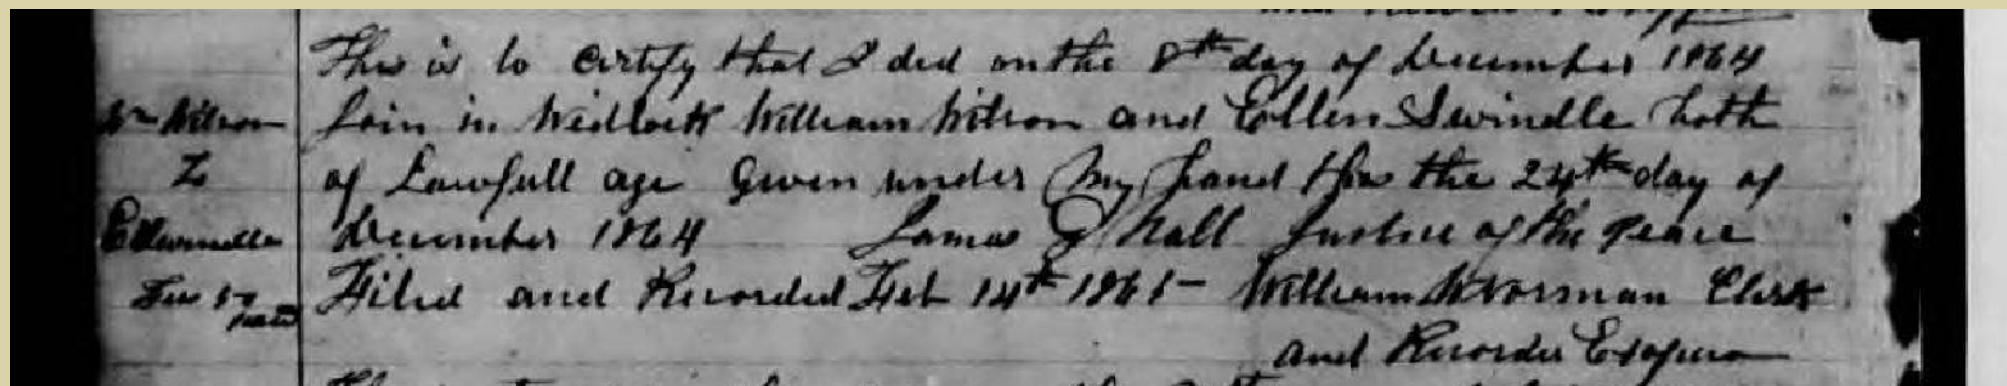 This is to certify that I did on the 8th day of December 1864
Wm Wilson
Join in Wedlock William Wilson and Ellen Swindle both
&
of Lawfull age Given under My hand this the 24th day of
E Swindle
December 1864 James G Hall Justice of the peace
Fee
Filed and Recorded Feb 14th 1865 William Worsman Clerk
and Recorder Exofficio